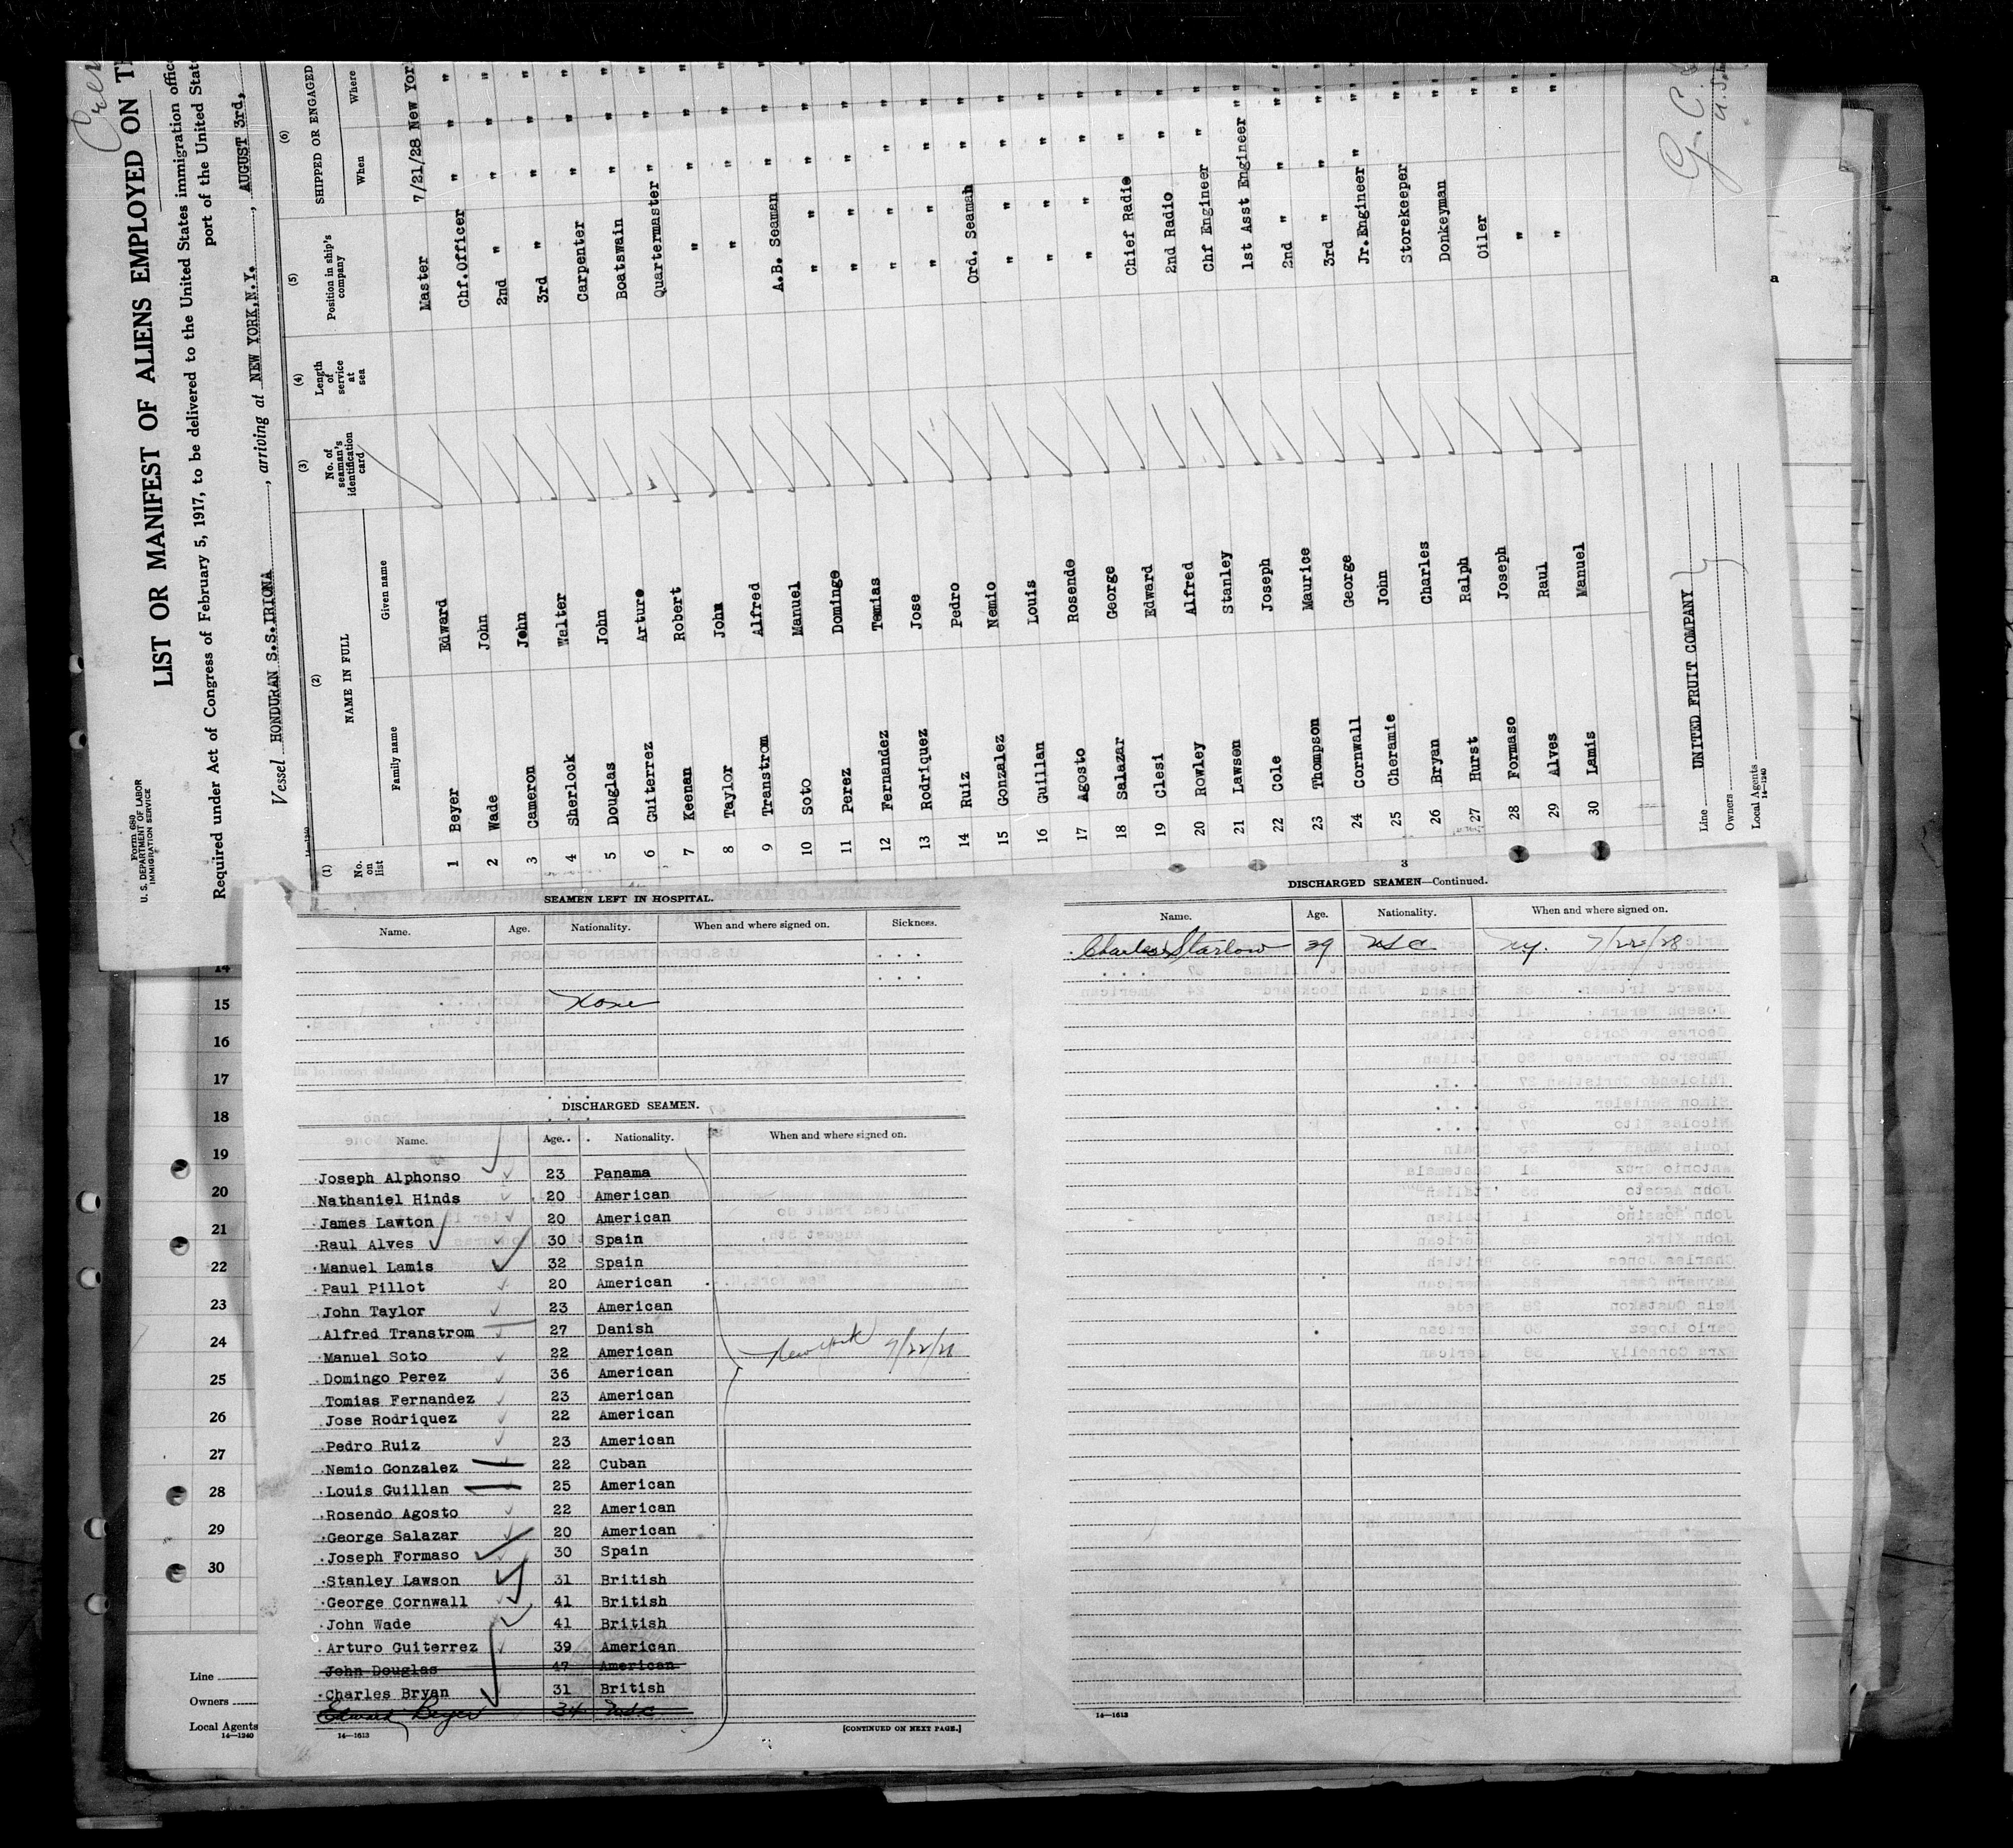 Form 680
U. S. DEPARTMENT OF LABOR
IMMIGRATION SERVICE
LIST OR MANIFEST OF ALIENS EMPLOYED ON
Required under Act of Congress of February 5, 1917, to be delivered to the United States immigration
port of the United
Vessel HONDURAN S.S.IRIONA, arriving at NEW YORK,N.Y., AUGUST 3rd,
14-1240
(1) (2) (3) (4) (5) (6)
No. on list NAME IN FULL No. of seaman's identification card Length of service at sea Position in ship's company SHIPPED OR ENGAGED
Family name Given name When Where
1 Beyer Edward Master 7/21/28 New York
2 Wade John Chf.Officer " " "
3 Cameron John 2nd " " " "
4 Sherlock Walter 3rd " " " "
5 Douglas John Carpenter " " "
6 Guiterrez Arturo Boatswain " " "
7 Keenan Robert Quartermaster " " "
8 Taylor John " " " "
9 Transtrom Alfred " " " "
10 Soto Manuel A.B. Seaman " " "
11 Perez Domingo " " " "
12 Fernandez Temias " " " "
13 Rodriquez Jose " " " "
14 Ruiz Pedro " " " "
15 Gonzalez Nemio Ord. Seaman " " "
16 Guillan Louis " " " "
17 Agosto Rosendo " " " "
18 Salazar George " " " "
19 Clesi Edward Chief Radio " " "
20 Rowley Alfred 2nd Radio " " "
21 Lawson Stanley Chf Engineer " " "
22 Cole Joseph 1st Asst Engineer " "
23 Thompson Maurice 2nd " " " "
24 Cornwall George 3rd " " " "
25 Cheramie John Jr.Engineer " " "
26 Bryan Charles Storekeeper " "
27 Hurst Ralph Donkeyman " "
28 Formaso Joseph Oiler " "
29 Alves Raul " " "
30 Lamis Manuel " " "
Line UNITED FRUIT COMPANY
Owners
Local Agents
14-1240
G. C.
SEAMEN LEFT IN HOSPITAL.
Name. Age. Nationality. When and where signed on. Sickness.
None
DISCHARGED SEAMEN.
Name. Age. Nationality. When and where signed on.
Joseph Alphonso 23 Panama
Nathaniel Hinds 20 American
James Lawton 20 American
Raul Alves 30 Spain
Manuel Lamis 32 Spain
Paul Pillot 20 American
John Taylor 23 American
Alfred Transtrom 27 Danish
Manuel Soto 22 American New York 7/22/28
Domingo Perez 36 American
Tomias Fernandez 23 American
Jose Rodriquez 22 American
Pedro Ruiz 23 American
Nemio Gonzalez 22 Cuban
Louis Guillan 25 American
Rosendo Agosto 22 American
George Salazar 20 American
Joseph Formaso 30 Spain
Stanley Lawson 31 British
George Cornwall 41 British
John Wade 41 British
Arturo Guiterrez 39 American
John Douglas 47 American
Charles Bryan 31 British
Edward Beyer 34 USC
14-1613
[CONTINUED ON NEXT PAGE.]
3
DISCHARGED SEAMEN—Continued.
Name. Age. Nationality. When and where signed on.
Charles Starlow 39 USC NY. 7/22/28
14-1613
14
15
16
17
18
19
20
21
22
23
24
25
26
27
28
29
30
Line
Owners
Local Agents
14-1240